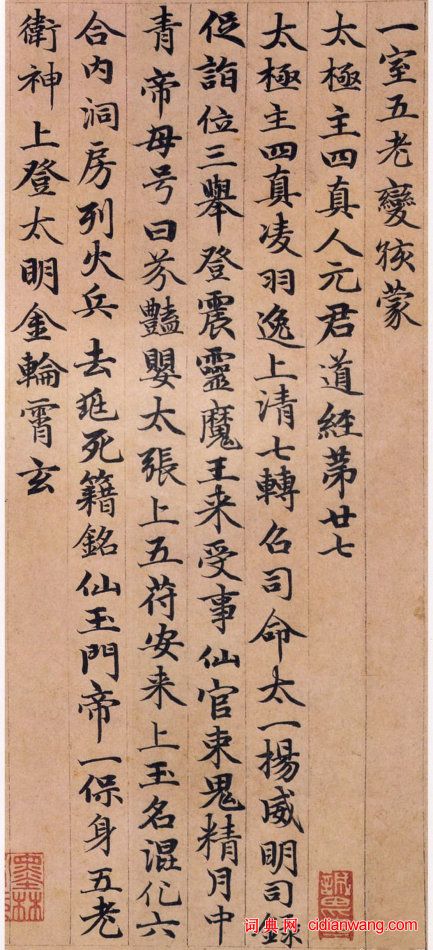 一室五老變孩蒙
太極主四真人元君道經苐廿七
太極主四真凌羽逸上清七轉召司命太一揚威明司錄
促詣位三舉登震靈魔王来受事仙官束鬼精月中
青帝母号曰芬豔嬰太張上五苻安来上玉名混化六
合内洞房列火兵去死籍銘仙玉門帝一保身五老
衛神上登太明金輪霄玄
墨林
词典网 www.cidianwang.com